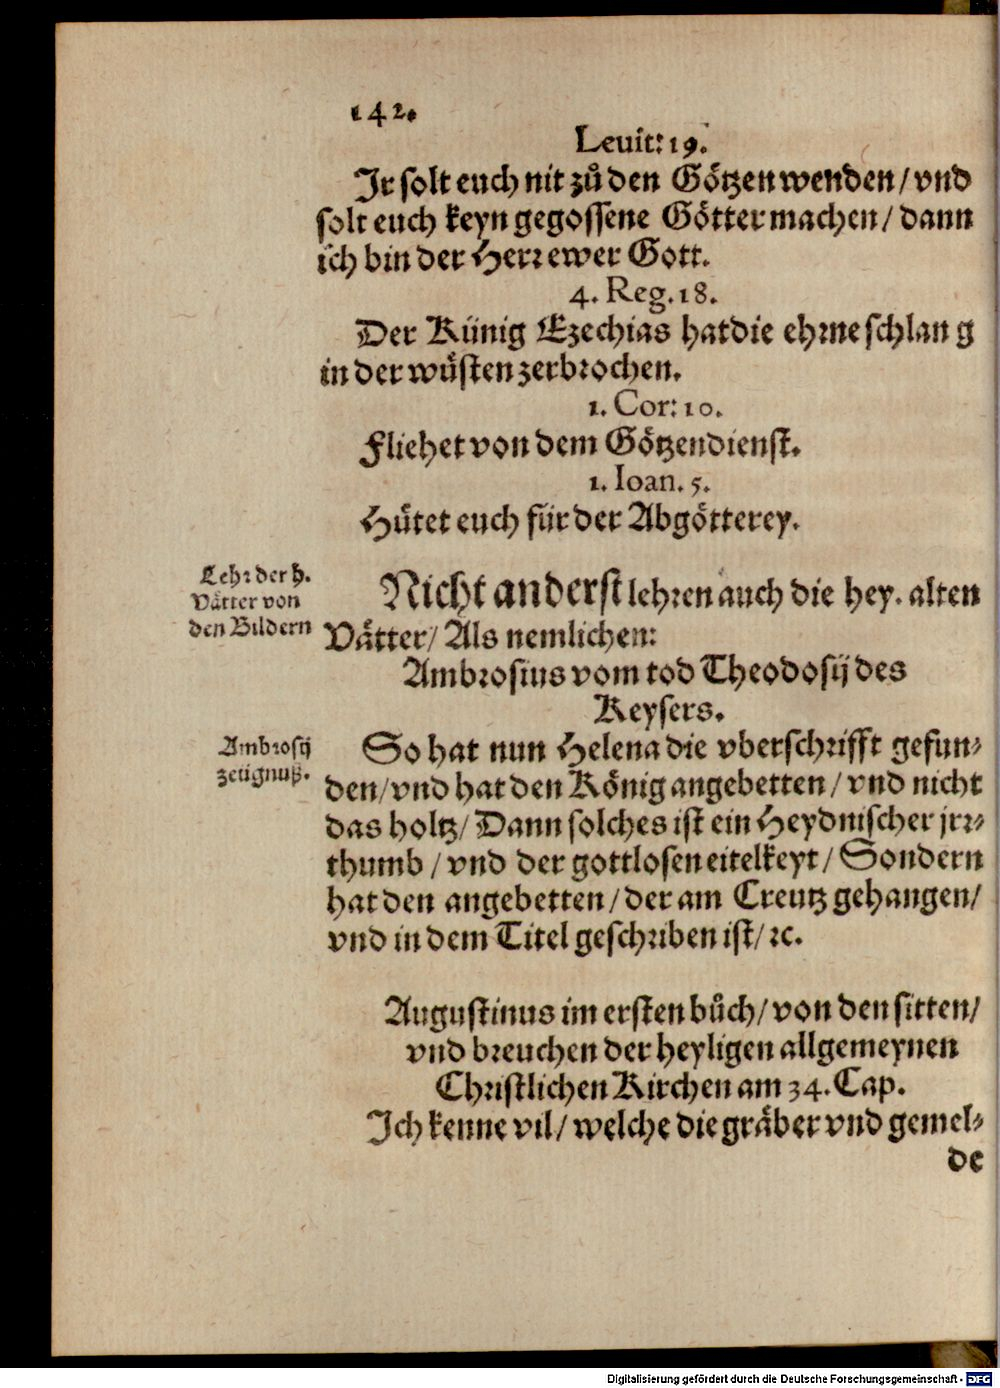 142.
Levit: 19.
Jr solt euch nit zů den Götzen wenden / vnd
solt euch keyn gegossene Götter machen / dann
ich bin der Herr ewer Gott.
4. Reg. 18.
Der Künig Ezechias hat die ehrne schlang
in der wüsten zerbrochen.
1. Cor: 10.
Fliehet von dem Götzendienst.
1. Ioan. 5.
Hütet euch für der Abgötterey.
Lehr der h.
Vätter von
den Bildern
Nicht anderst lehren auch die hey. alten
Vätter / Als nemlichen:
Ambrosius vom tod Theodosij des
Keysers.
Ambrosij
zeügnuß.
So hat nun Helena die vberschrifft gefun-
den / vnd hat den König angebetten / vnd nicht
das holtz / Dann solches ist ein Heydnischer jrr-
thumb / vnd der gottlosen eitelkeyt / Sondern
hat den angebetten / der am Creutz gehangen /
vnd in dem Titel geschriben ist / ꝛc.
Augustinus im ersten bůch / von den sitten /
vnd breuchen der heyligen allgemeynen
Christlichen Kirchen am 34. Cap.
Ich kenne vil / welche die gräber vnd gemel-
de
Digitalisierung gefördert durch die Deutsche Forschungsgemeinschaft - DFG